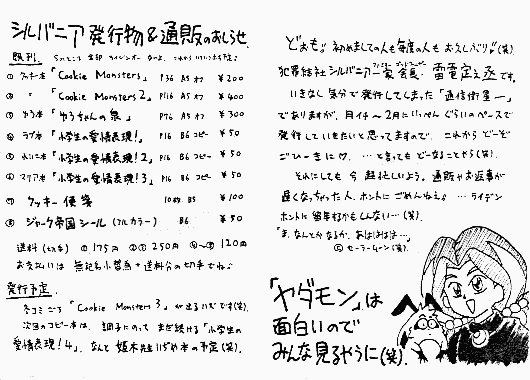 シルバニア発行物&通販のおしらせ.
既刊.
① クッキー本 「Cookie Monsters」 P36 A5 オフ ¥200
② 〃 「Cookie Monsters 2」 P16 A5 オフ ¥400
③ ゆう本 「ゆうちゃんの泉」 P76 A5 オフ ¥300
④ ラブ本 「小学生の愛情表現!」 P16 B6 コピー ¥50
⑤ 「小学生の愛情表現!2」 P16 B6 コピー ¥50
⑥ マリア本 「小学生の愛情表現!3」 P16 B6 コピー ¥50
⑦ クッキー便箋 10枚 B5 ¥100
⑧ ジャーク帝国シール (フルカラー) B6 ¥50
送料 (切手) ① 175円 ②③ 250円 ④〜⑧ 120円
お支払いは 無記名小為替+送料分の切手でね♪
発行予定.
冬コミごろ 「Cookie Monster 3」が出るハズです(笑).
次回のコピー本は、調子にのって まだ続ける「小学生の
愛情表現!4」. なんと 姫木先生いぢめ本の予定(笑).
どぉも!! 初めましての人も毎度の人も お久しぶり!!(笑)
犯罪結社シルバニア一家会長. 雷電定ヱ丞です.
いきなし気分で発行してしまった「通信衛星一」
でありますが、月イチ〜2月にいっぺんぐらいのペースで
発行していきたいと思ってますので、これからどーぞ
ごひーきに!? …と言っても どーなることやら(笑).
それにしても 今 超忙しいよう. 通販やお返事が
遅くなっちゃった人、ホントに ごめんねぇ♪ …ライデン
ホントに留年するかもしんない…(笑).
「ま、なんとかなるか、あはははは…」
© セーラームーン(笑).
「ヤダモン」は
面白いので
みんな見るやうに(笑).